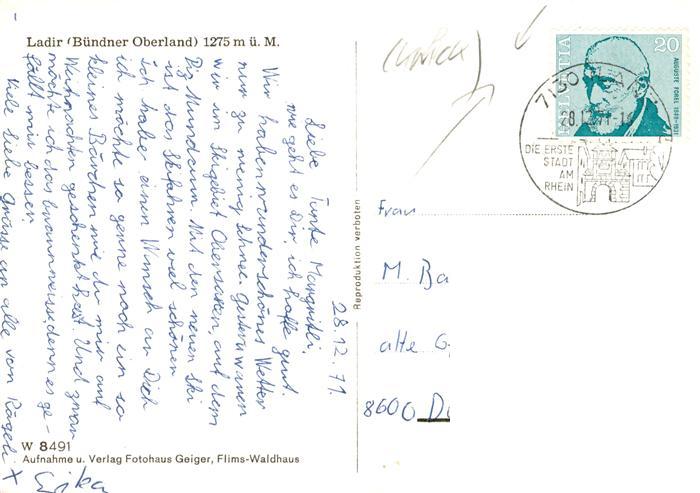 Ladir (Bündner Oberland) 1275 m ü. M.
28.12.71.
Liebe Tante Margritli,
wie geht es Dir, ich hoffe gut.
Wir haben wunderschönes Wetter
nur zu wenig Schnee. gestern waren
wir im Skigebiet Obersaxen, auf dem
Piz Mundaun. Mit den neuen Ski
ist das Skifahren viel schöner.
Ich habe einen Wunsch an Dich
ich möchte so gerne noch ein so
kleines Bürchen wie du mir auf
Weihnachten geschenkt hast. Und zwar
möchte ich das braunweisse, denn es ge-
fällt mir besser.
viele liebe Grüsse an alle von Rägeli X
Erika
W 8491
Aufnahme u. Verlag Fotohaus Geiger, Flims-Waldhaus
Reproduktion verboten
HELVETIA
20
AUGUSTE FOREL 1848-1931
7130
28.12.71-1
DIE ERSTE
STADT
AM
RHEIN
Frau
M. Ba
alte G
8600 D